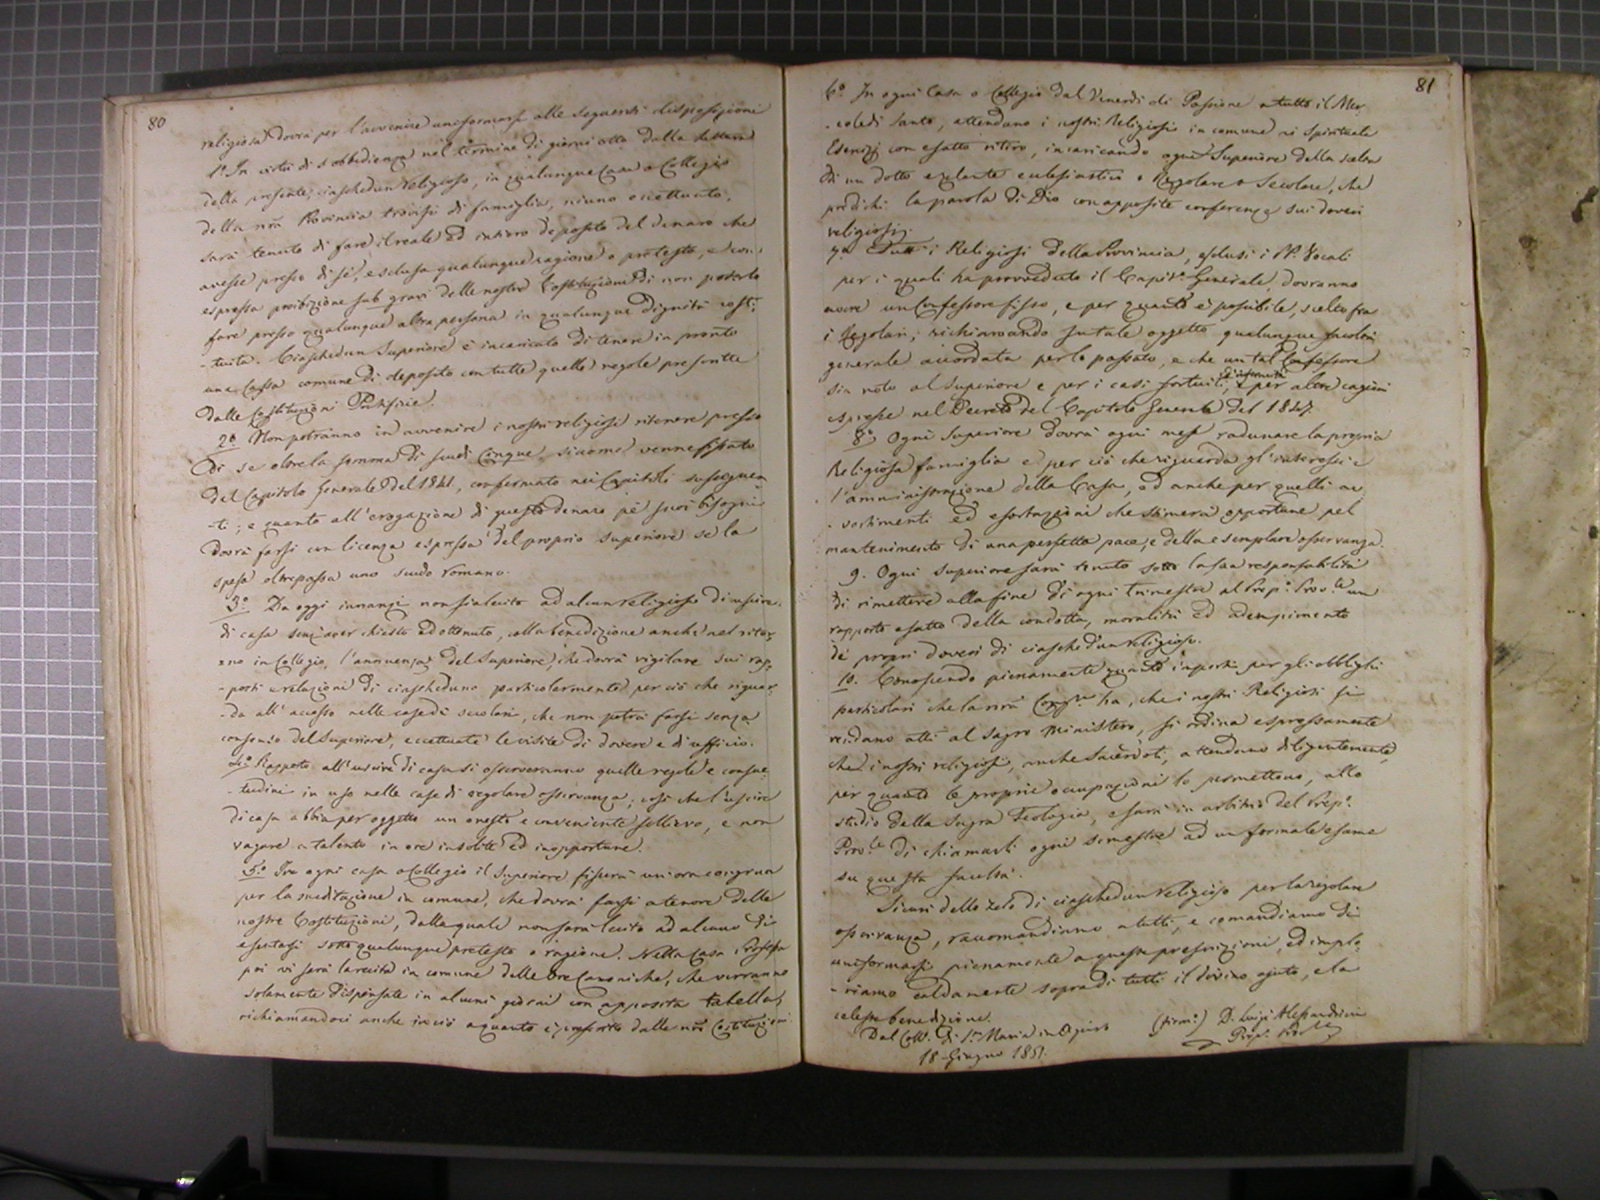 80
religiosa dovrà per l'avvenire uniformarsi alle seguenti disposizioni
1.° In virtù di s. obbedienza nel termine di giorni otto dalla lettura
della presente, ciaschedun religioso, in qualunque Casa o Collegio
della nrã Provincia trovisi di famiglia, niuno eccettuato,
sarà tenuto di fare il reale ed intiero deposito del denaro che
avesse presso di sè, esclusa qualunque ragione o pretesto, e con
espressa proibizione sub gravi delle nostre Costituzioni di non poterlo
fare presso qualunque altra persona in qualunque dignità costi-
-tuita. Ciaschedun Superiore è incaricato di tenere in pronto
una Cassa comune di deposito con tutte quelle regole prescritte
dalle Costituzioni Pontificie.
2.° Non potranno in avvenire i nostri religiosi ritenere presso
di se oltre la somma di scudi cinque, siccome venne fissato
del Capitolo Generale del 1841, confermato nei Capitoli susseguen-
-ti; e quanto all'erogazione di questo denaro pe' suoi bisogni
dovrà farsi con licenza espressa del proprio superiore se la
spesa oltrepassa uno scudo romano.
3.° Da oggi innanzi non sia lecito ad alcun religioso di uscire
di casa senz'aver chiesta ed ottenuto, colla benedizione anche nel ritor-
-no in Collegio, l'annuenza del Superiore, che dovrà vigilare sui rap-
-porti e relazioni di ciascheduno particolarmente per ciò che riguar-
-da all'accesso nelle case di secolari, che non potrà farsi senza
consenso del Superiore, eccettuate le visite di dovere e di ufficio.
4.° Rapporto all'uscire di casa si osserveranno quelle regole e consue-
-tudini in uso nelle case di regolare osservanza; così che l'uscire
di casa abbia per oggetto un onesto e conveniente sollievo, e non
vagare a talento in ore insolite ed inopportune.
5.° In ogni casa o Collegio il Superiore fisserà un'ora congrua
per la meditazione in comune, che dovrà farsi a tenore delle
nostre Costituzioni, dalla quale non sarà lecito ad alcuno di
esentarsi sotto qualunque pretesto o ragione. Nella Casa Professa
poi vi sarà la recita in comune delle Ore Canoniche, che verranno
solamente dispensate in alcuni giorni con apposita tabella,
richiamandoci anche in ciò a quanto è prescritto dalle nrẽ Costituzioni.
81
6.° In ogni Casa o Collegio dal Venerdì di Passione a tutto il Mer-
-coledì Santo, attendano i nostri Religiosi in comune ai Spirituali
Esercizj con esatto ritiro, incaricando ogni Superiore della scelta
di un dotto e zelante ecclesiastico o Regolare o Secolare, che
predichi la parola di Dio con apposite conferenze sui doveri
religiosi.
7.° Tutti i Religiosi della Provincia, esclusi i PP. Vocali
per i quali ha provveduto il Capit.° Generale, dovranno
avere un Confessore fisso, e per quanto è possibile, scelto fra
i Regolari; richiamando su tale oggetto qualunque facoltà
generale accordata per lo passato, e che un tal Confessore
sia noto al Superiore e per i casi fortuiti, d'infermità e per altre cagioni
espresse nel Decreto del Capitolo Generale del 1847.
8.° Ogni Superiore dovrà ogni mese radunare la propria
Religiosa famiglia e per ciò che riguarda gl'interessi e
l'amministrazione della Casa, ed anche per quelli av-
-vertimenti ed esortazioni che stimerà opportune pel
mantenimento di una perfetta pace, e della esemplare osservanza.
9. Ogni superiore sarà tenuto sotto la sua responsabilità
di rimettere alla fine di ogni trimestre al Prep.° Prov.le un
rapporto esatto della condotta, moralità ed adempimento
de' propri doveri di ciaschedun religioso.
10. Conoscendo pienamente quanto importi per gli obblighi
particolari che la nrã Cong.ne ha, che i nostri Religiosi si
rendano atti al Sagro Ministero, si ordina espressamente
che i nostri religiosi, anche Sacerdoti, attendano diligentemente,
per quanto le proprie occupazioni lo permettono, allo
studio della Sagra Teologia, e sarà in arbitrio del Prep.°
Prov.le di chiamarli ogni semestre ad un formale esame
su questa facoltà.
Sicuri dello zelo di ciaschedun religioso per la regolare
osservanza, raccomandiamo a tutti, e comandiamo di
uniformarsi pienamente a queste prescrizioni, ed implo-
-riamo caldamente sopra di tutti il divino ajuto, e la
celeste benedizione.
Dal Coll. di S.ta Maria in Aquiro
18 Giugno 1851.
(firm.°) D. Luigi Alessandrini
Prep. Prov.le